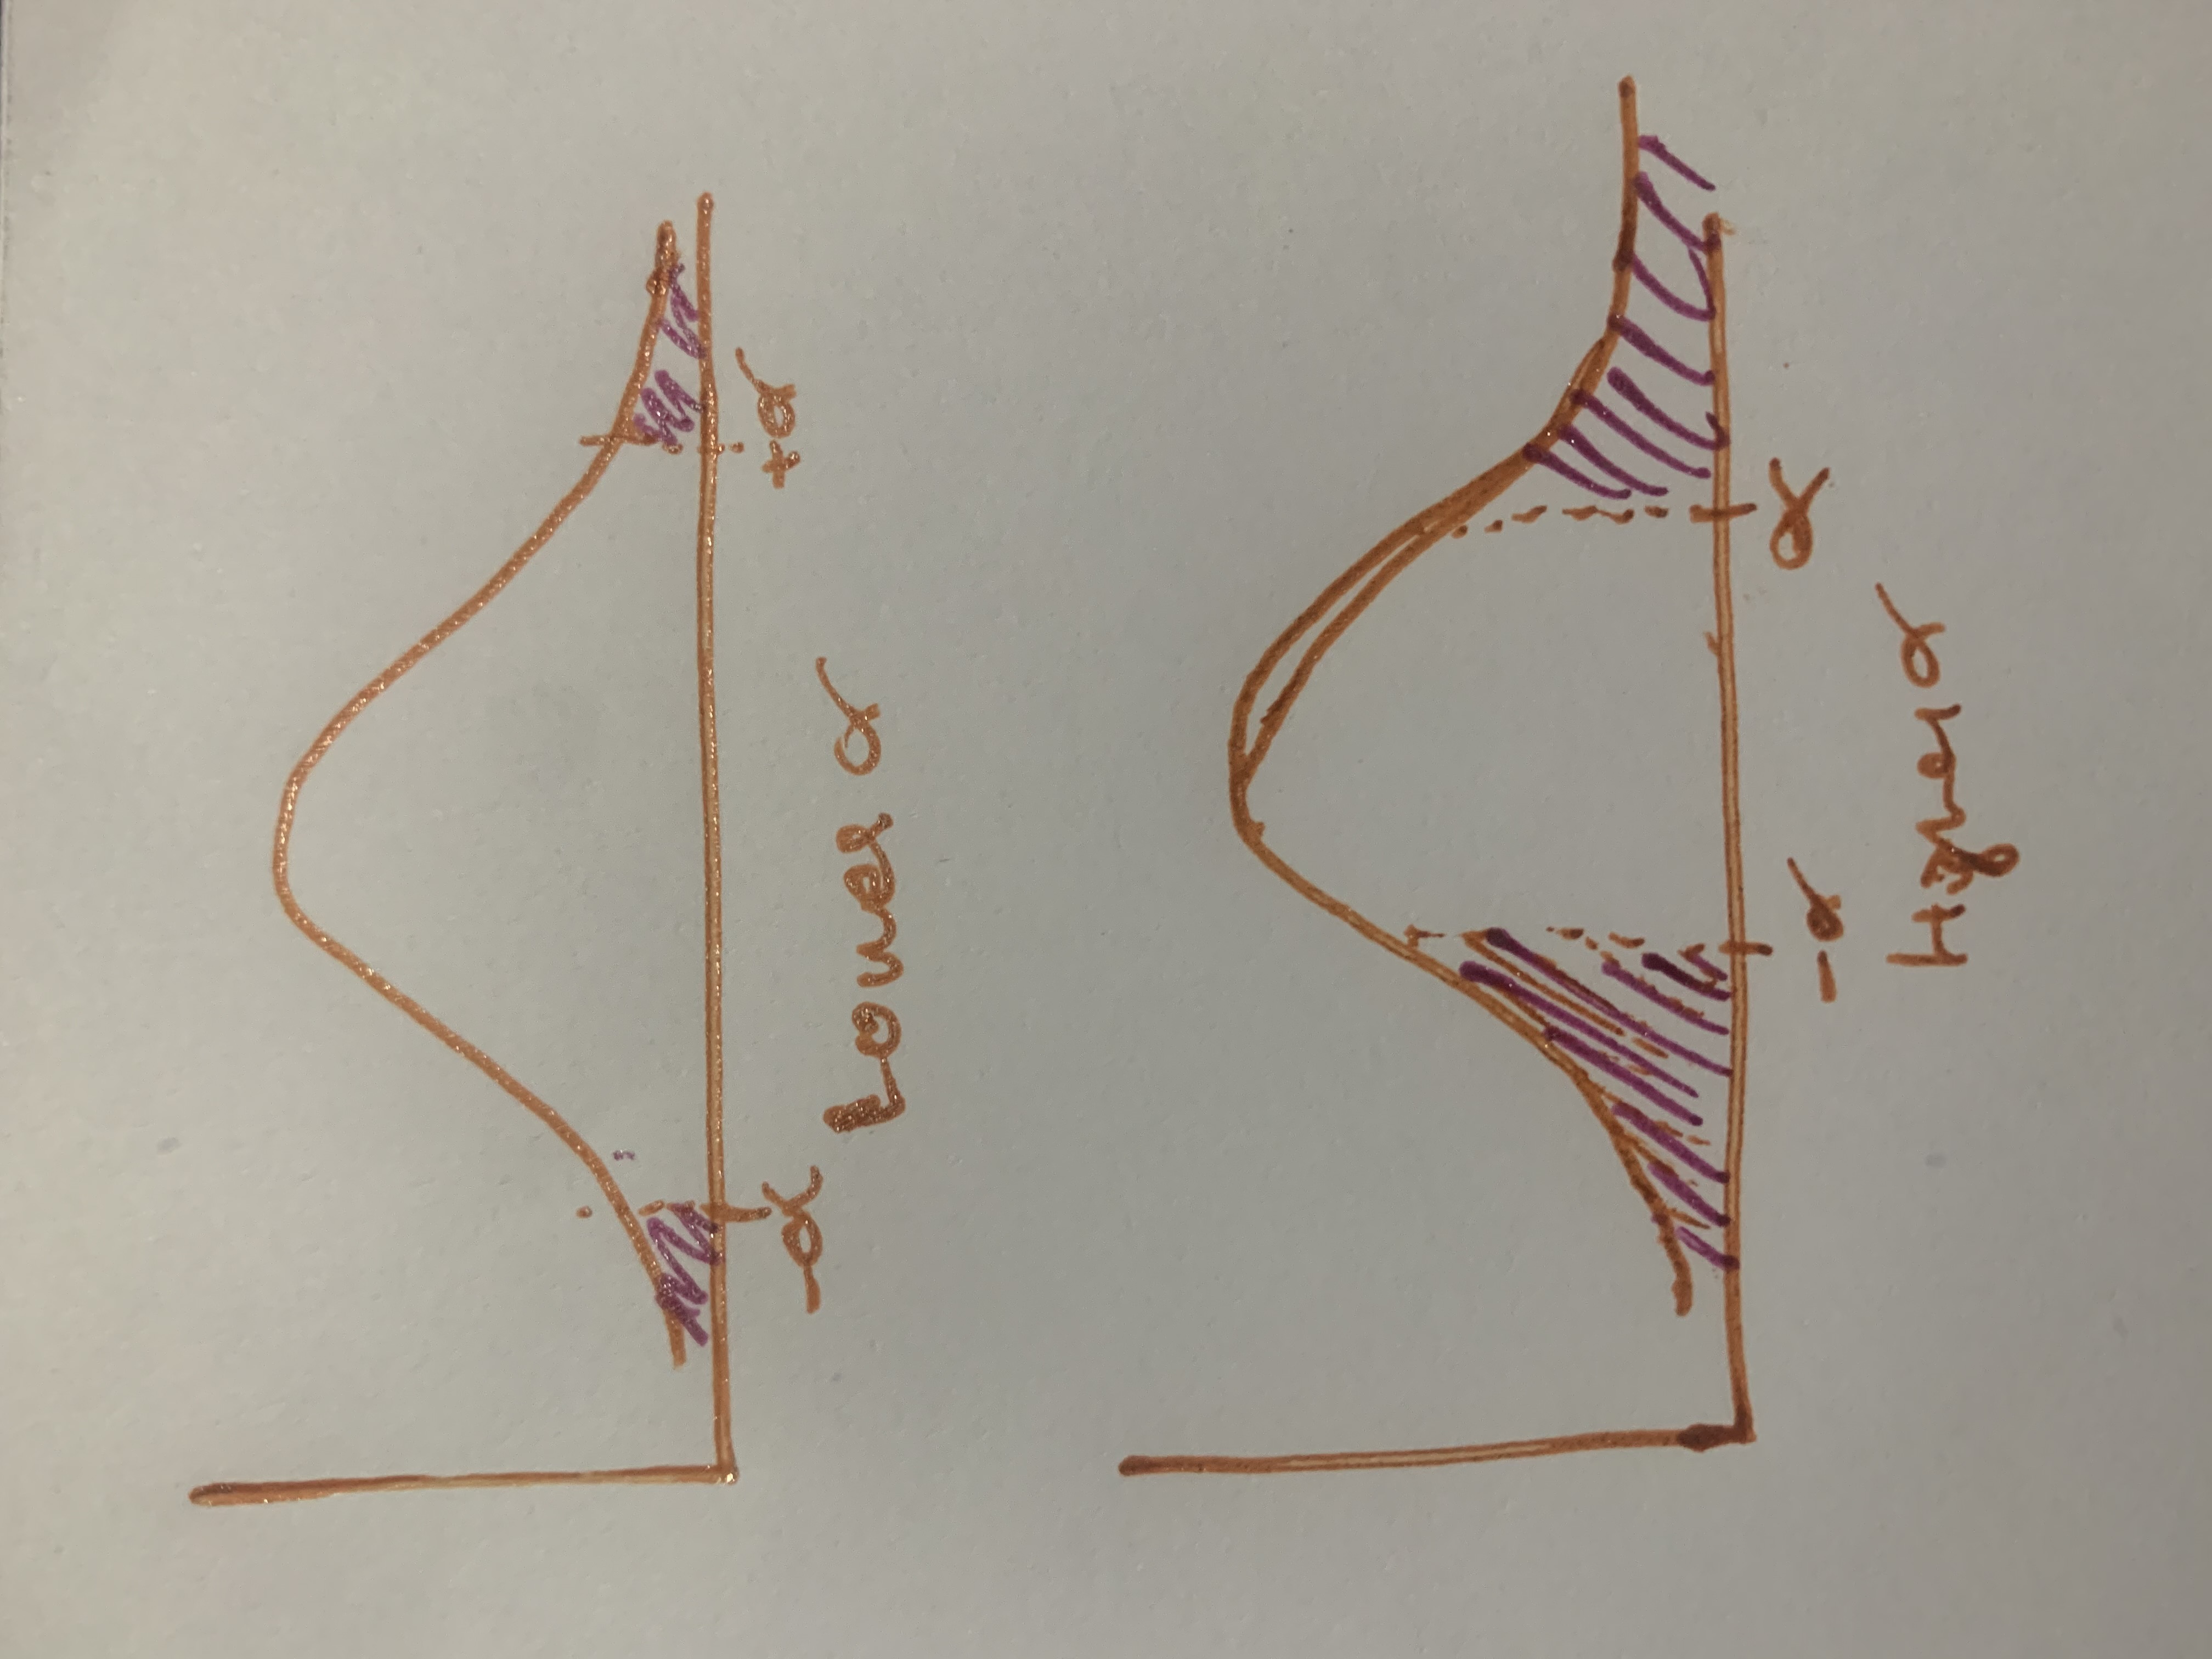 -α +α
Lower α
-α α
Higher α